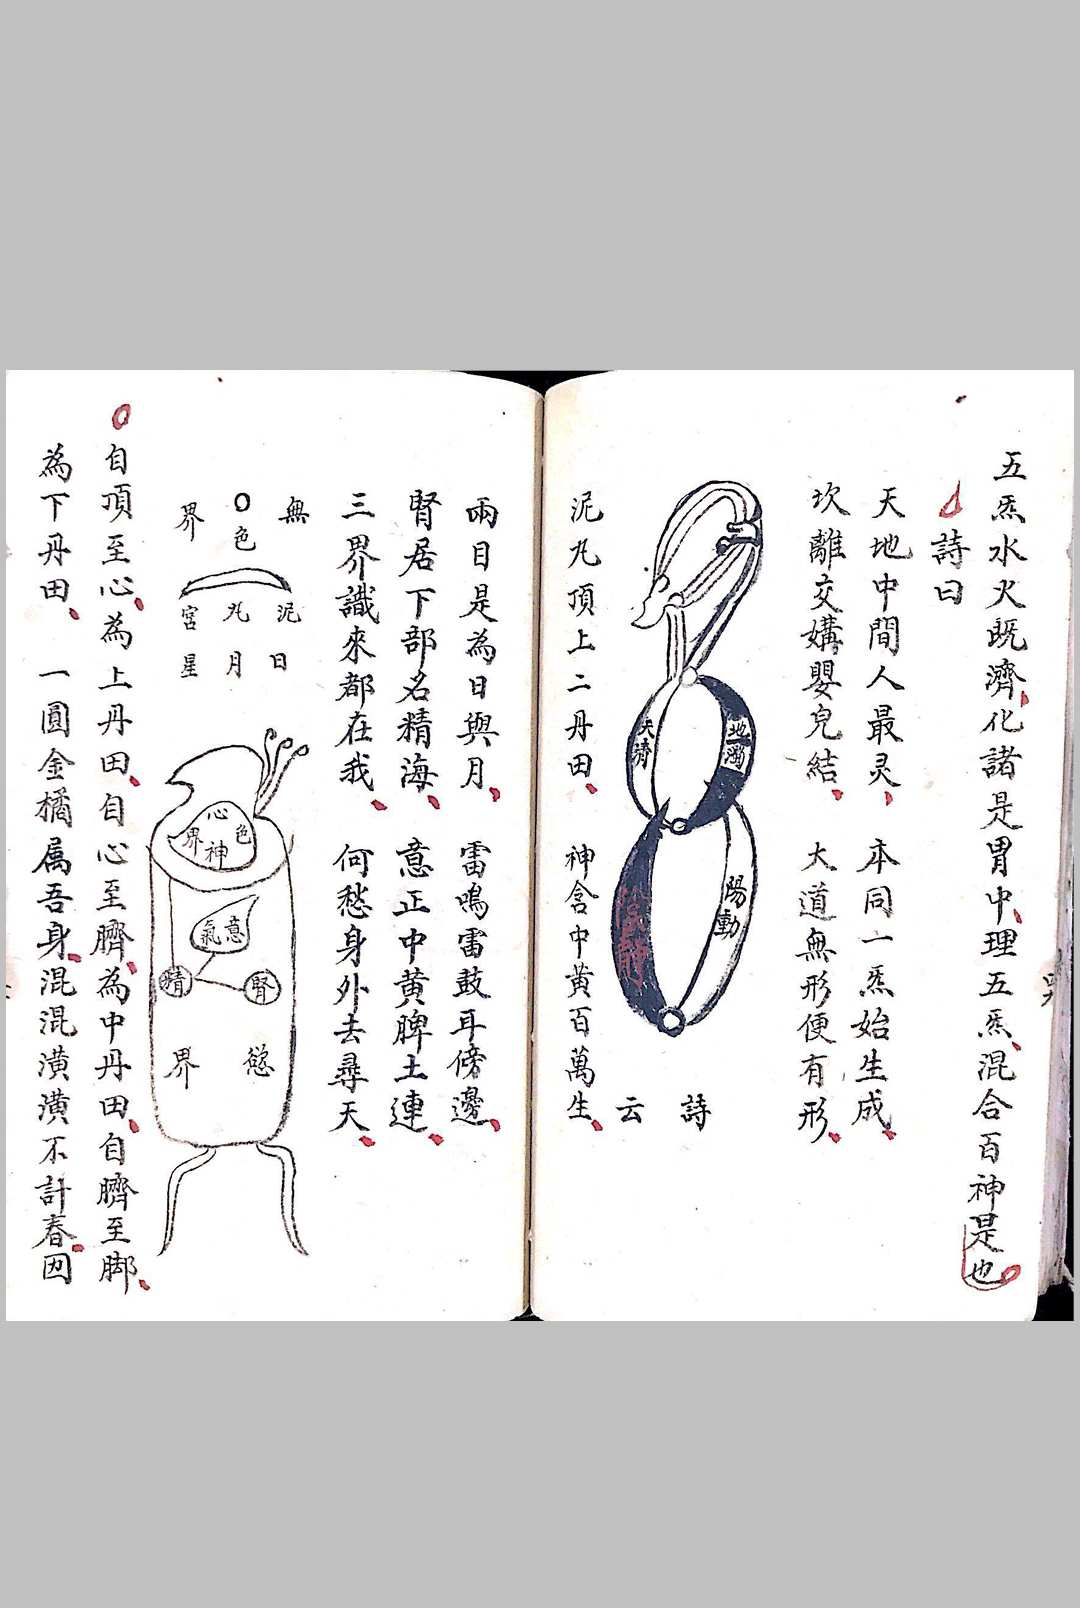 五炁水火既濟化諸是胃中理五炁混合百神是也
詩曰
天地中間人最灵 本同一炁始生成
坎離交媾嬰兒結 大道無形便有形
地濁
天清
陽動
陰靜
詩云
泥丸頂上二丹田 神含中黄百萬生
兩目是為日與月 雷鳴雷鼓耳傍邊
腎居下部名精海 意正中黄脾土連
三界識來都在我 何愁身外去尋天
無色界
泥丸宮
日月星
心
色神界
意氣
腎
精
慾界
自頂至心為上丹田自心至臍為中丹田自臍至脚
為下丹田 一圓金橘属吾身混混潢潢不計春因